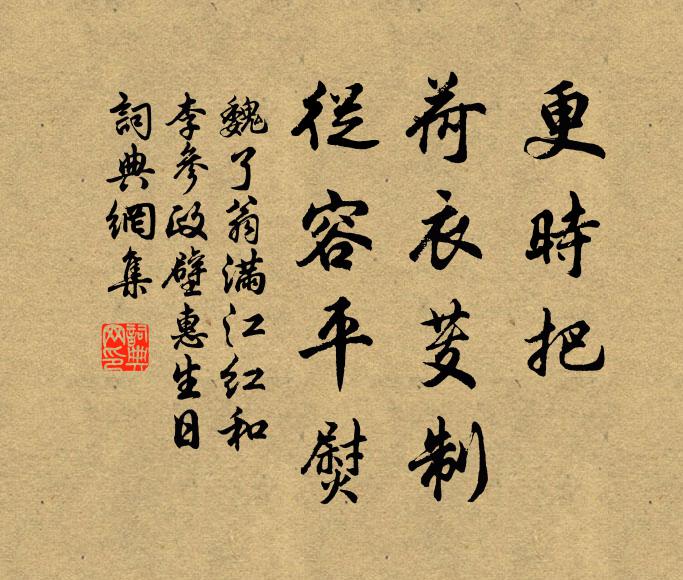 更時把
荷衣芰制
從容平熨
魏了翁滿江紅和
李參政壁惠生日
詞典網集
詞典
网印